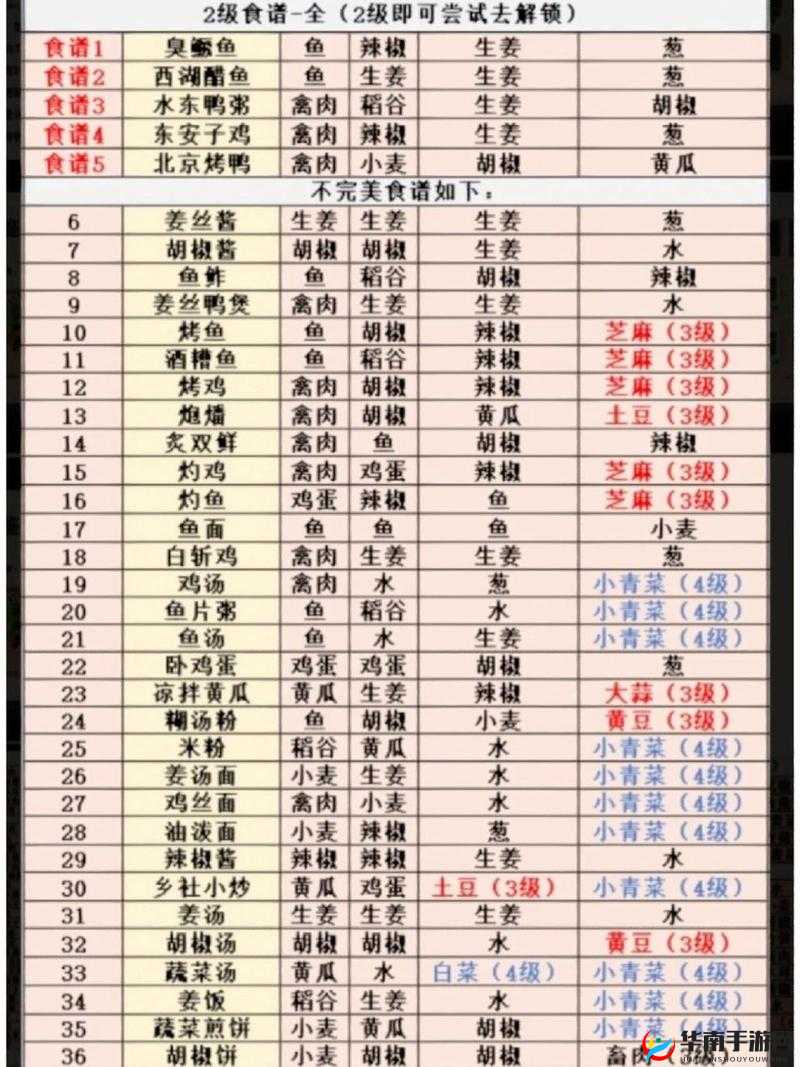 2级食谱-全（2级即可尝试去解锁）
食谱1 臭鳜鱼 鱼 辣椒 生姜 葱
食谱2 西湖醋鱼 鱼 生姜 生姜 葱
食谱3 水东鸭粥 禽肉 稻谷 生姜 胡椒
食谱4 东安子鸡 禽肉 辣椒 生姜 葱
食谱5 北京烤鸭 禽肉 小麦 胡椒 黄瓜
不完美食谱如下：
6 姜丝酱 生姜 生姜 生姜 葱
7 胡椒酱 胡椒 胡椒 生姜 水
8 鱼鲊 鱼 稻谷 胡椒 辣椒
9 姜丝鸭煲 禽肉 生姜 生姜 水
10 烤鱼 鱼 胡椒 辣椒 芝麻（3级）
11 酒糟鱼 鱼 稻谷 辣椒 芝麻（3级）
12 烤鸡 禽肉 胡椒 辣椒 芝麻（3级）
13 炮燔 禽肉 胡椒 黄瓜 土豆（3级）
14 炙双鲜 禽肉 鱼 胡椒 辣椒
15 灼鸡 禽肉 鸡蛋 辣椒 芝麻（3级）
16 灼鱼 鸡蛋 辣椒 鱼 芝麻（3级）
17 鱼面 鱼 鱼 鱼 小麦
18 白斩鸡 禽肉 生姜 生姜 葱
19 鸡汤 禽肉 水 葱 小青菜（4级）
20 鱼片粥 鱼 稻谷 水 小青菜（4级）
21 鱼汤 鱼 水 生姜 小青菜（4级）
22 卧鸡蛋 鸡蛋 鸡蛋 胡椒 葱
23 凉拌黄瓜 黄瓜 生姜 辣椒 大蒜（3级）
24 糊汤粉 鱼 胡椒 小麦 黄豆（3级）
25 米粉 稻谷 黄瓜 水 小青菜（4级）
26 姜汤面 小麦 生姜 水 小青菜（4级）
27 鸡丝面 禽肉 小麦 水 小青菜（4级）
28 油泼面 小麦 辣椒 葱 小青菜（4级）
29 辣椒酱 辣椒 辣椒 生姜 水
30 乡社小炒 黄瓜 鸡蛋 土豆（3级） 小青菜（4级）
31 姜汤 生姜 生姜 生姜 水
32 胡椒汤 胡椒 胡椒 水 黄豆（3级）
33 蔬菜汤 黄瓜 水 白菜（4级） 小青菜（4级）
34 姜饭 稻谷 生姜 水 小青菜（4级）
35 蔬菜煎饼 小麦 黄瓜 胡椒 小青菜（4级）
36 胡椒饼 小麦 胡椒 胡椒 畜肉
华南手游网